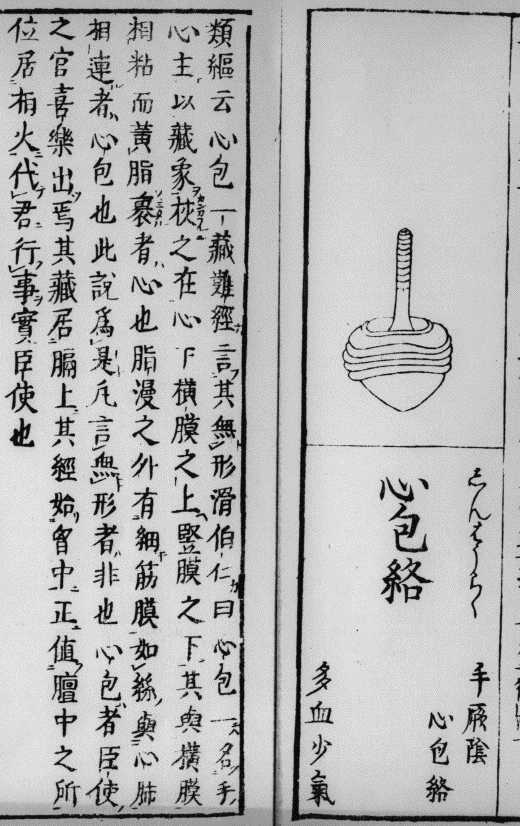 しんはうらく
心包絡
手厥陰
心包絡
多血少氣
類經云心包一藏難經言其無形滑伯仁曰心包一名手
心主以藏象挍之在心下橫膜之上竪膜之下其與橫膜
相粘而黄脂裹者心也脂漫之外有細筋膜如絲與心肺
相連者心包也此說為是凡言無形者非也心包者臣使
之官喜樂出焉其藏居膈上其經始會中正値膻中之所
位居相火代君行事實臣使也